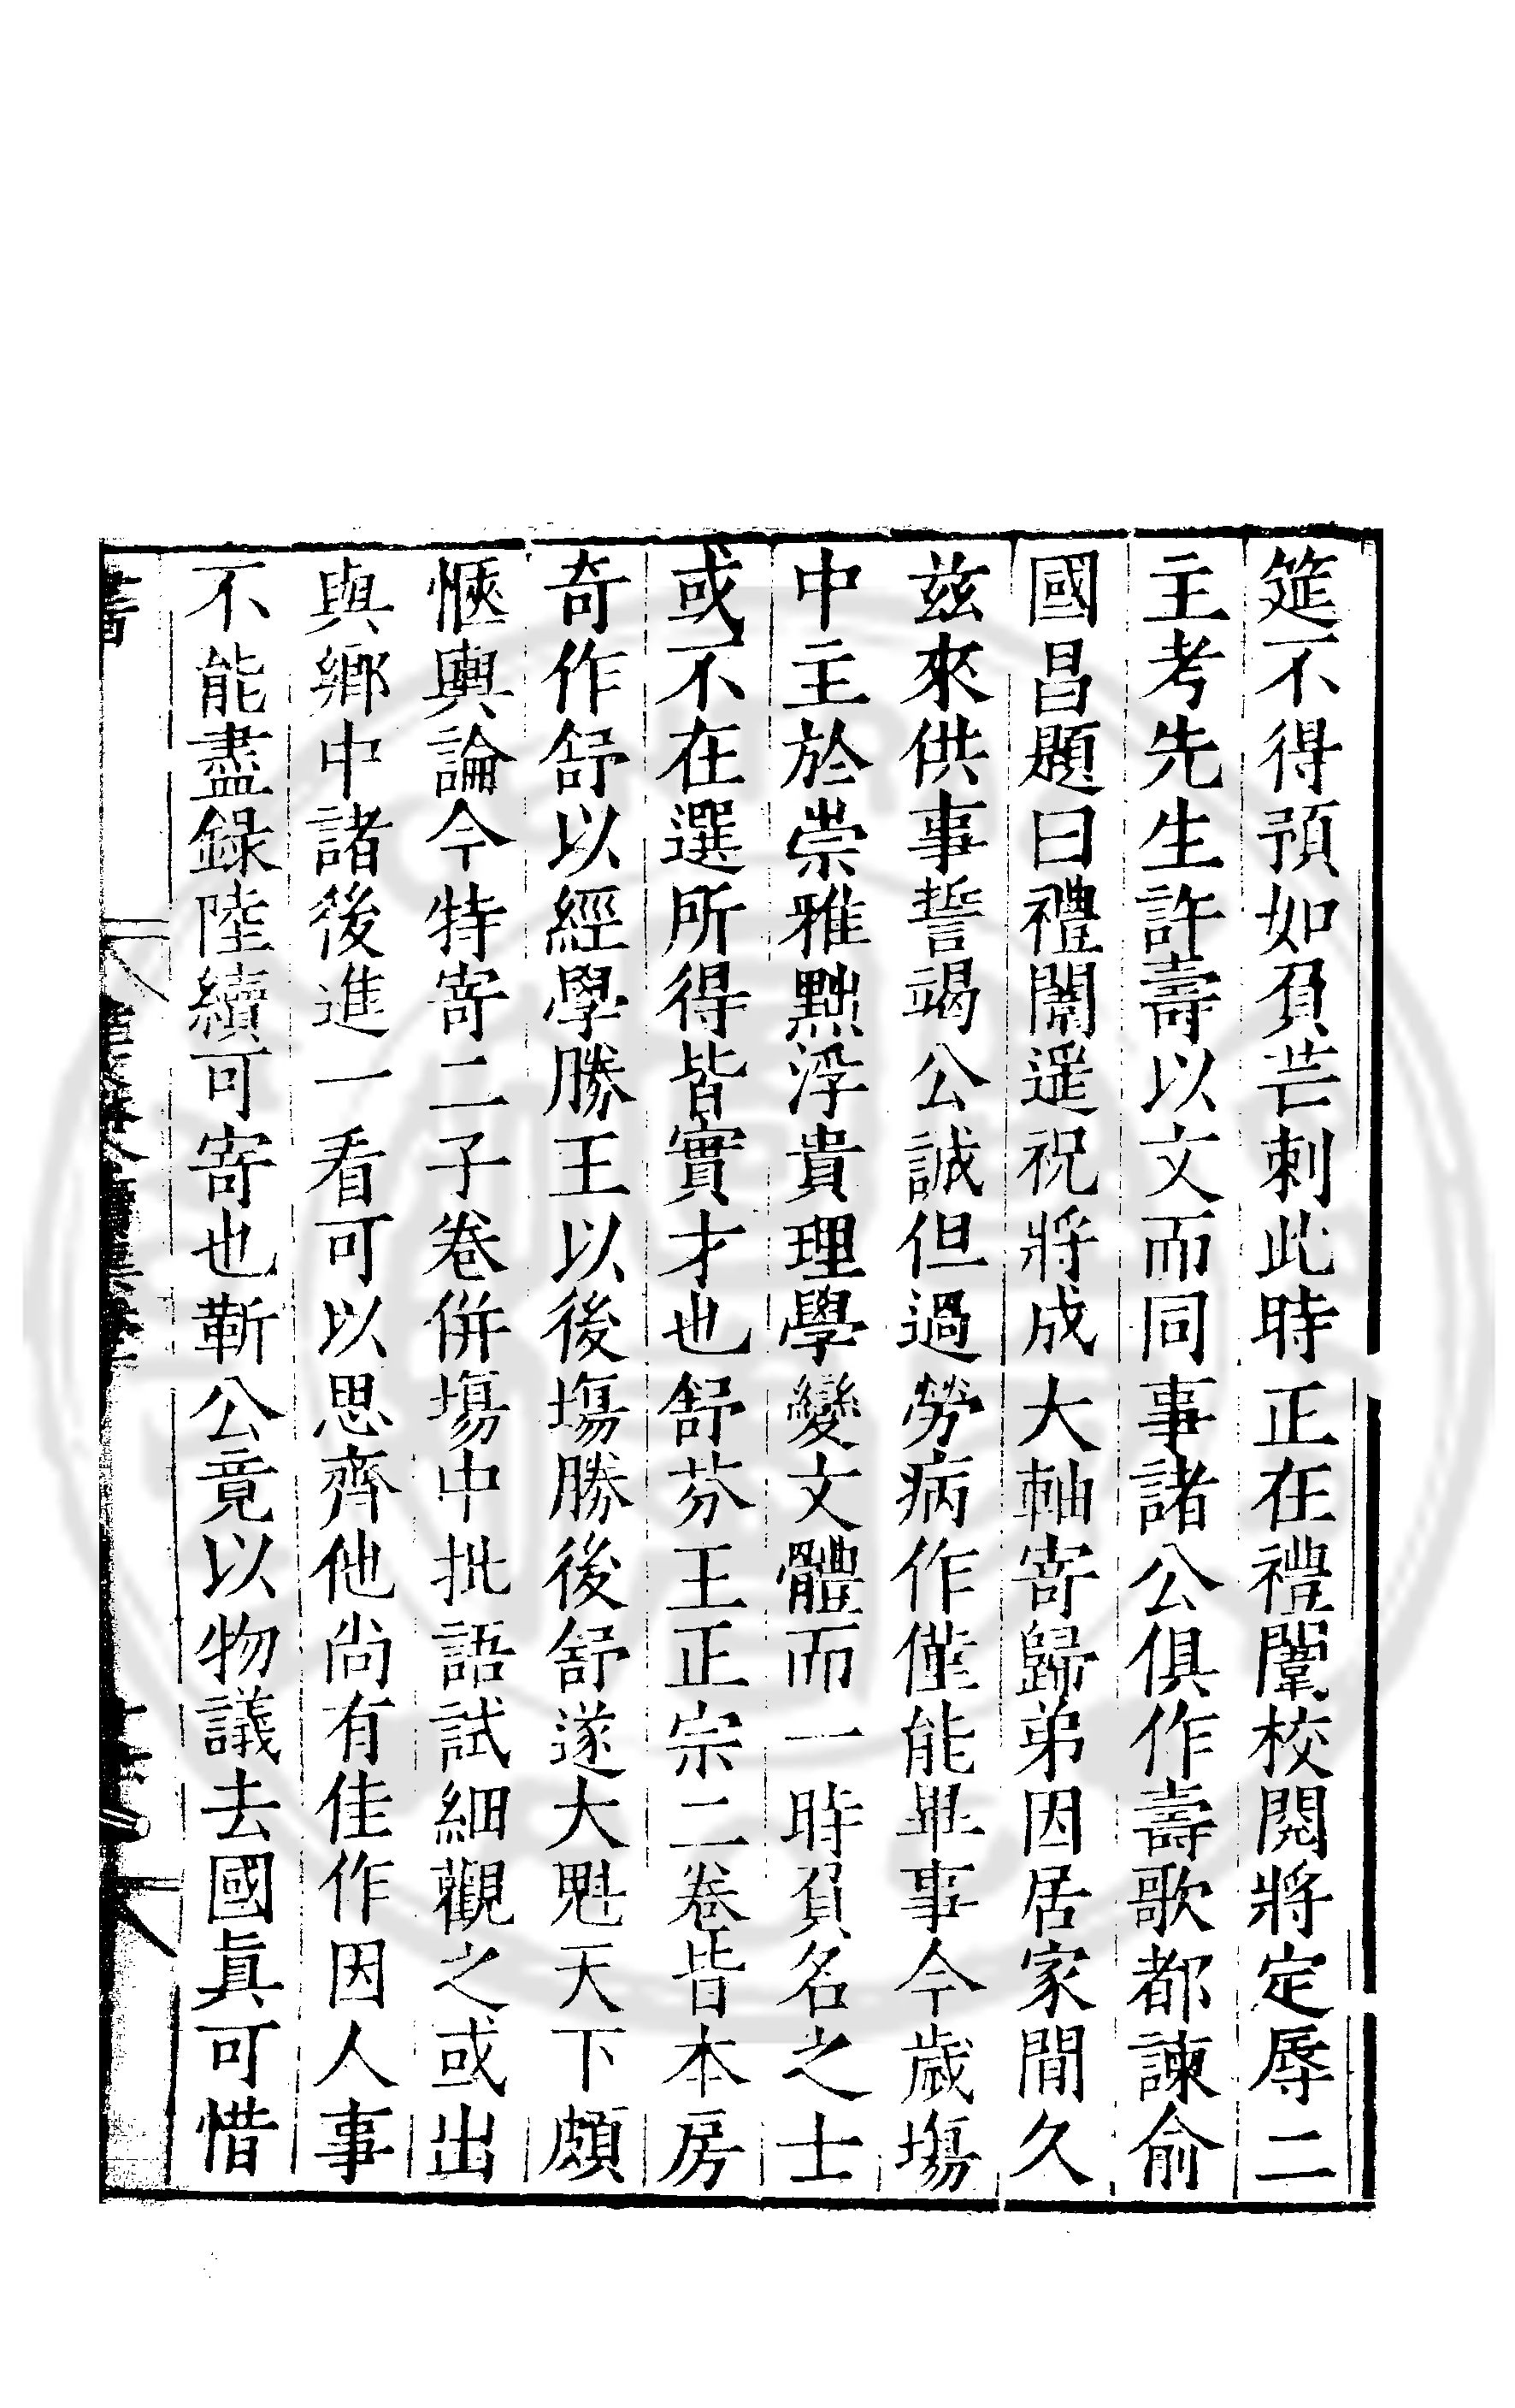 筵不得預如負芒刺此時正在禮闈校閱將定辱二
主考先生許壽以文而同事諸公俱作壽歌都諫俞
國昌題曰禮闈遥祝將成大軸寄歸弟因居家間久
兹來供事誓竭公誠但過勞病作僅能畢事今歲塲
中主於崇雅黜浮貴理學變文體而一時負名之士
或不在選所得皆實才也舒芬王正宗二卷皆本房
奇作舒以經學勝王以後塲勝後舒遂大魁天下頗
愜輿論今特寄二子卷併塲中批語試細觀之或出
與鄉中諸後進一看可以思齊他尚有佳作因人事
不能盡錄陸續可寄也靳公竟以物議去國眞可惜